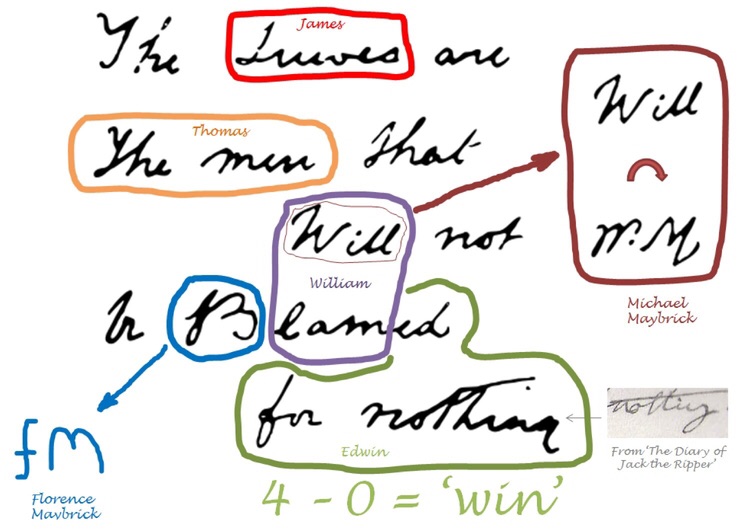 James
The Juwes are
Thomas
The men that
Will
Will not
W.M
William
Michael
Maybrick
be Blamed
for nothing
nothing
fM
Edwin
From 'The Diary of
Jack the Ripper'
Florence
Maybrick
4 - 0 = 'win'